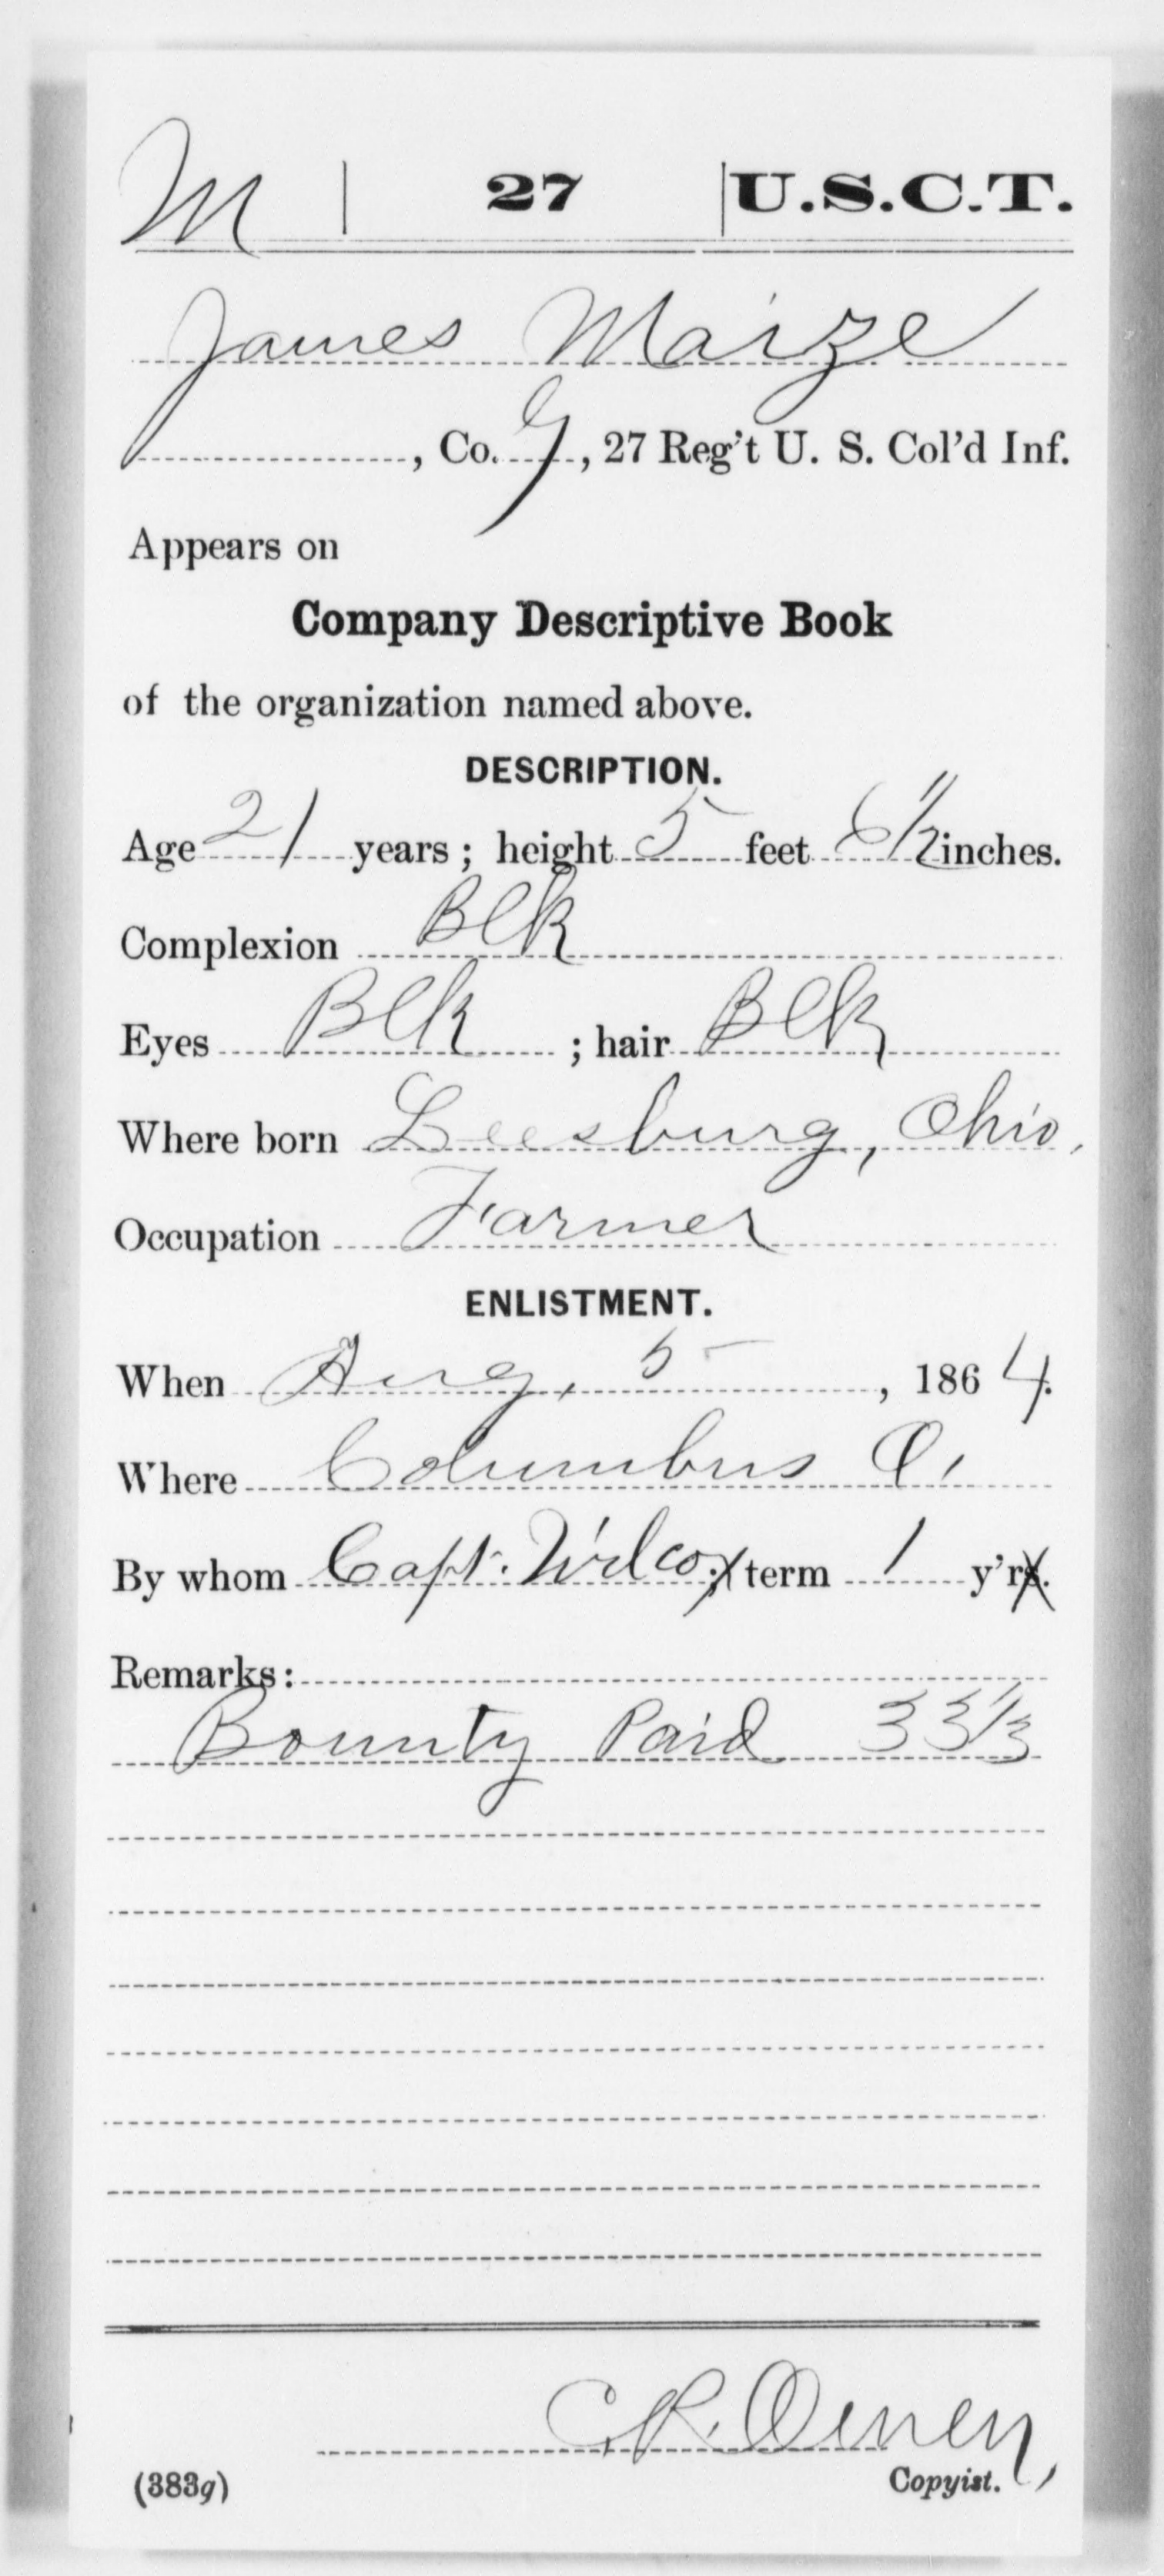 M | 27 | U.S.C.T.
James Maize
, Co. G, 27 Reg't U. S. Col'd Inf.
Appears on
Company Descriptive Book
of the organization named above.
DESCRIPTION.
Age 21 years; height 5 feet 6 1/2 inches.
Complexion Blk
Eyes Blk; hair Blk
Where born Leesburg, Ohio,
Occupation Farmer
ENLISTMENT.
When Aug. 5, 1864.
Where Columbus O.
By whom Capt. Wilcox; term 1 y'rs.
Remarks:
Bounty Paid 33 1/3
C.R.
(383g) Copyist.